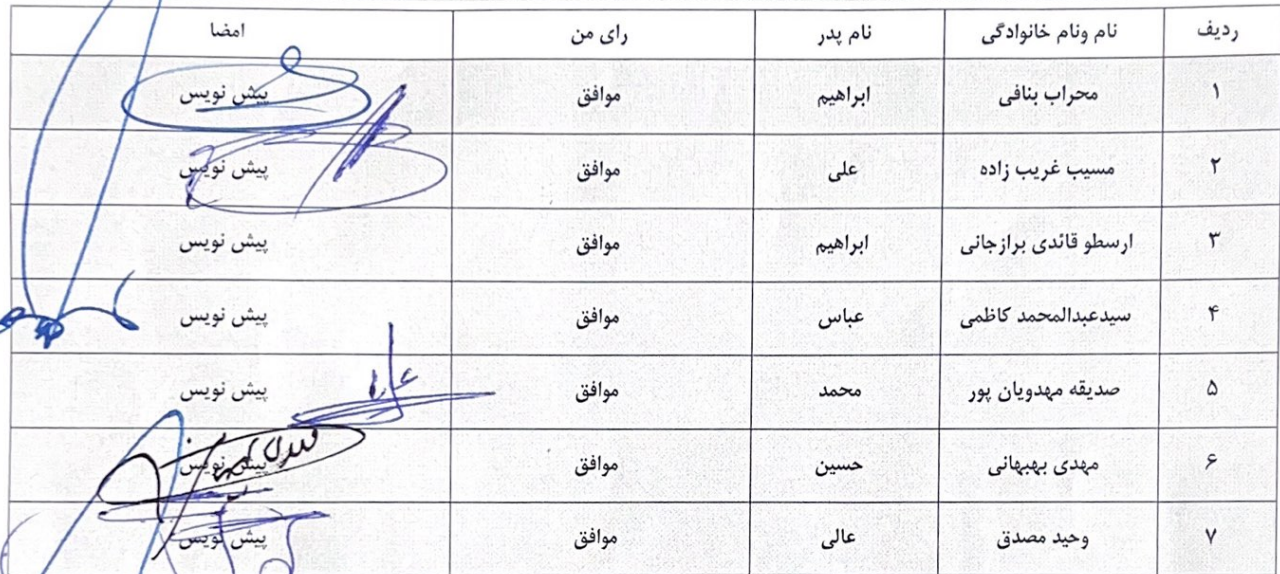 ردیف نام ونام خانوادگی نام پدر رای من امضا
۱ محراب بنافی ابراهیم موافق پیش نویس
۲ مسیب غریب زاده علی موافق پیش نویس
۳ ارسطو قائدی برازجانی ابراهیم موافق پیش نویس
۴ سیدعبدالمحمد کاظمی عباس موافق پیش نویس
۵ صدیقه مهدویان پور محمد موافق پیش نویس
۶ مهدی بهبهانی حسین موافق پیش نویس
۷ وحید مصدق عالی موافق پیش نویس